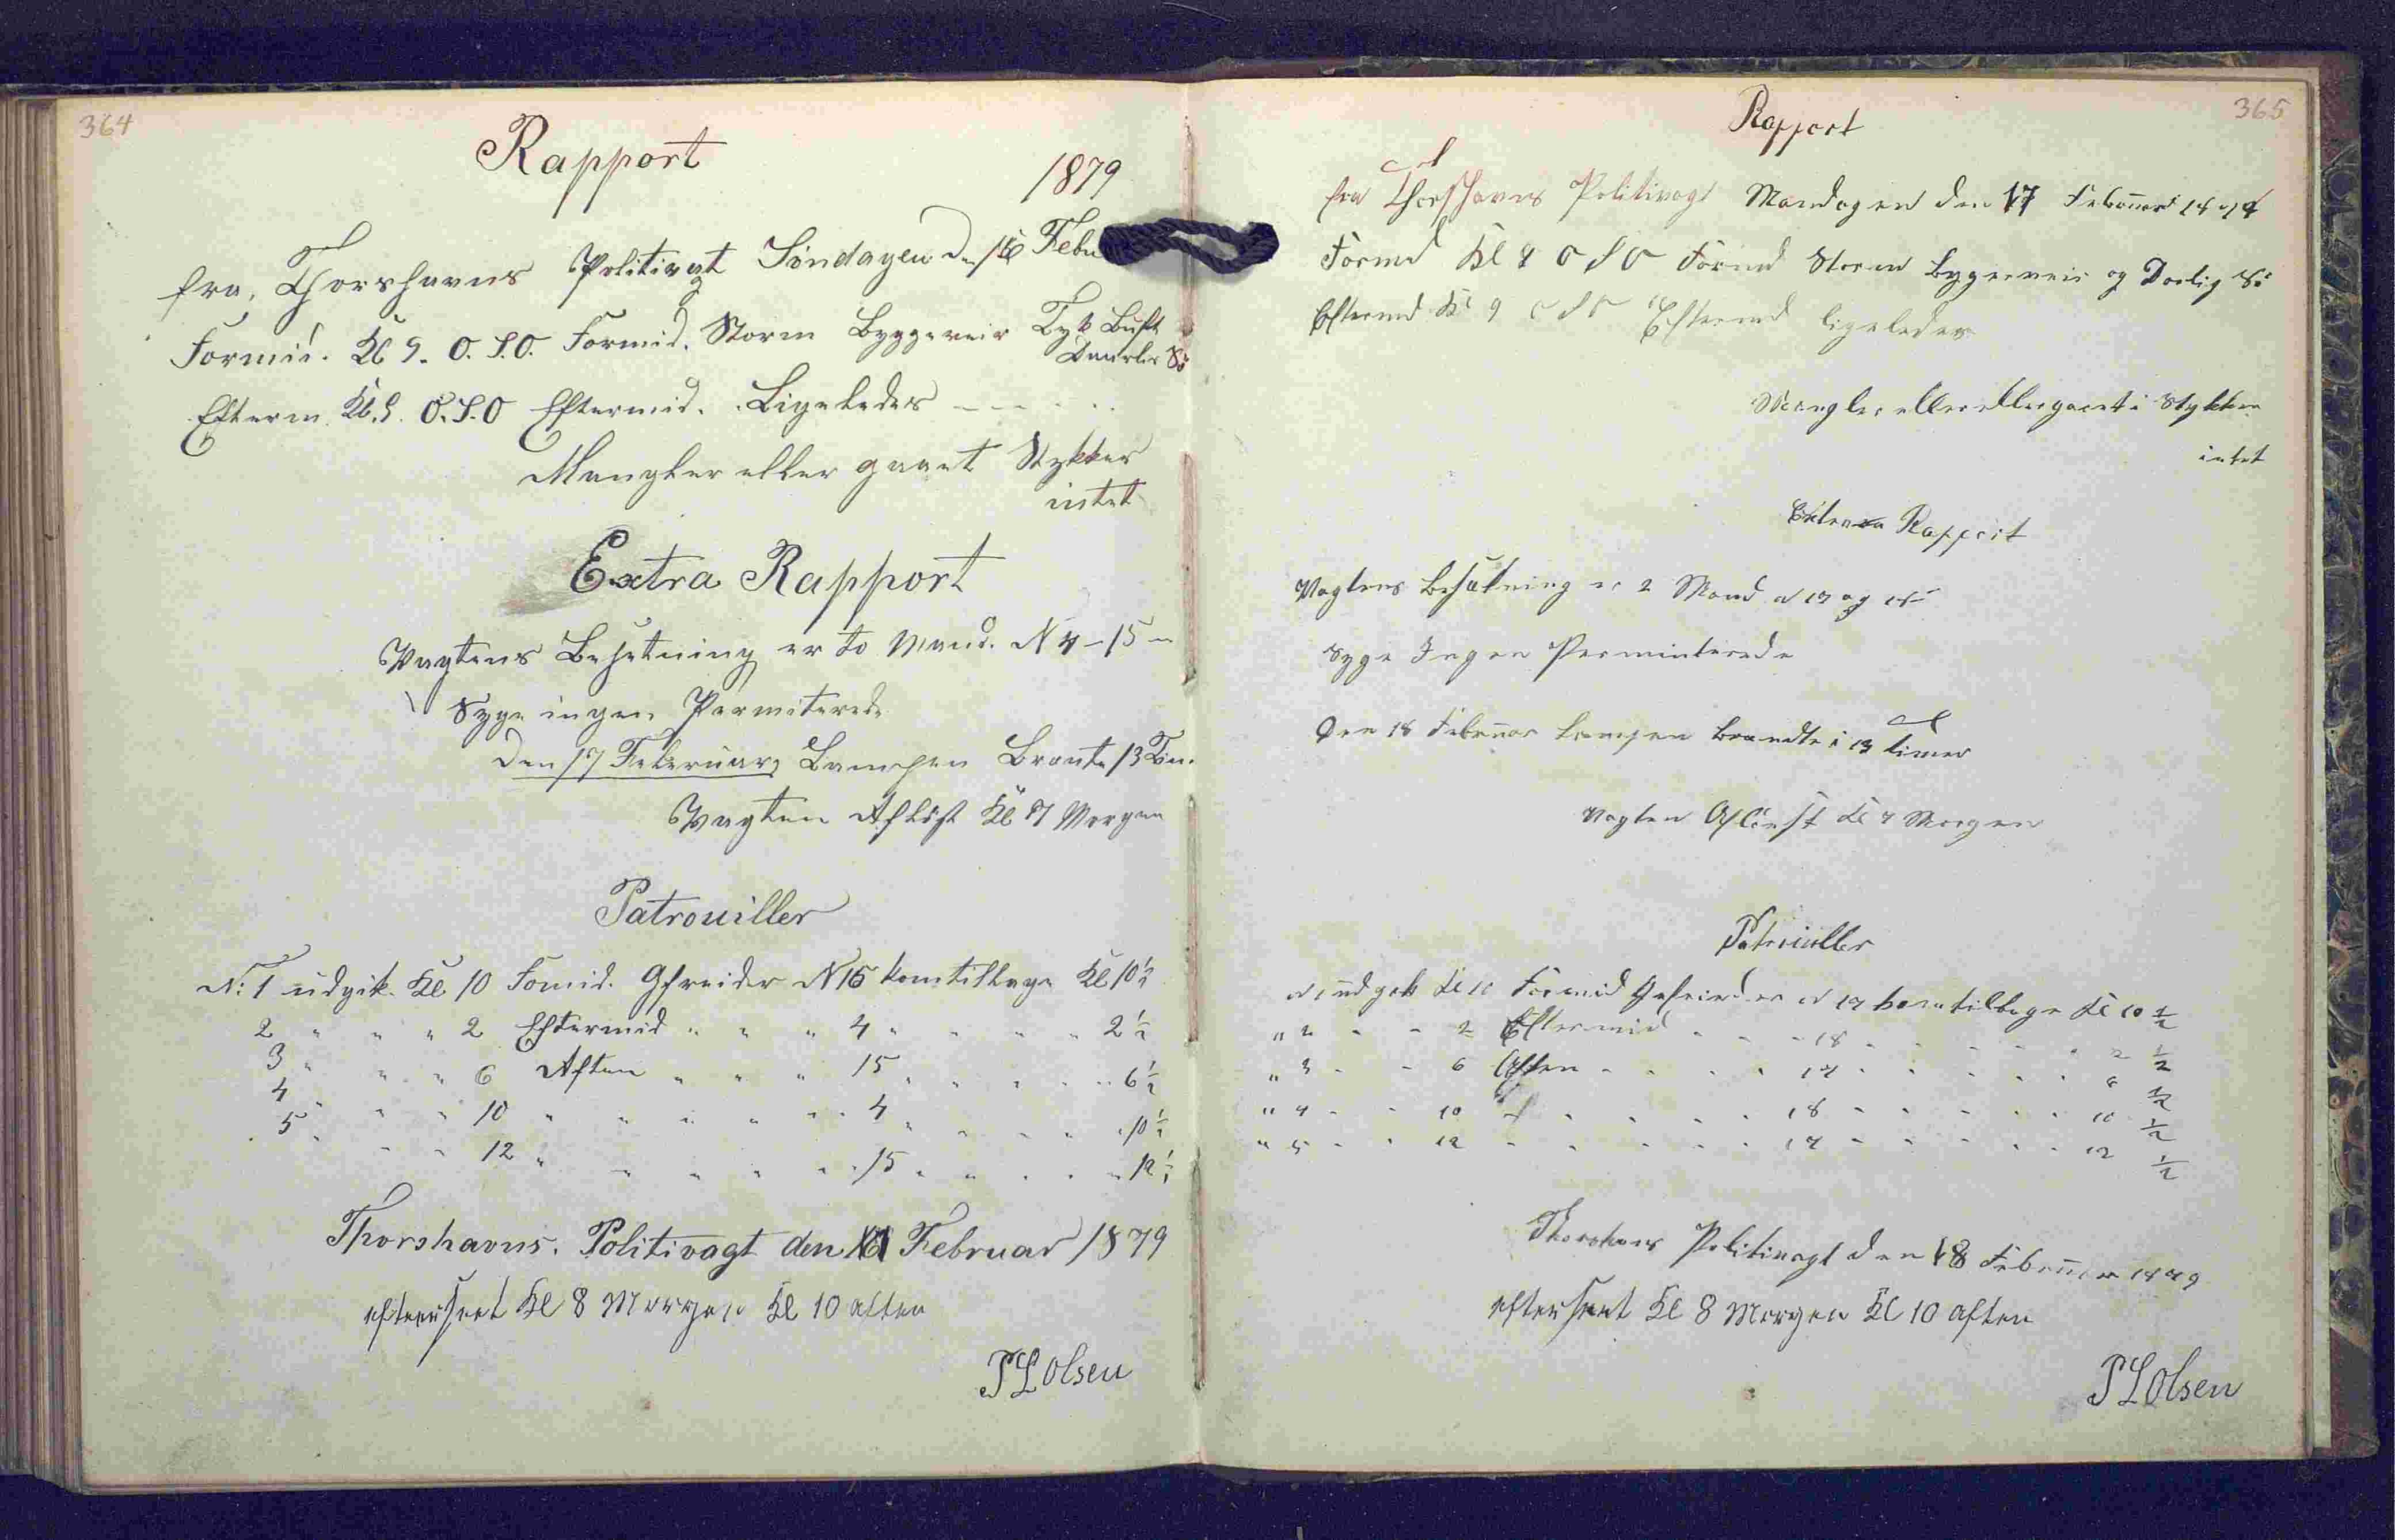 364
Rapport
1879
fra, Thorshavns Politivagt Söndagen d. 16 Febu
Formid. Kl 9. O.S.O. Formid. Storm Byggeveir Tyk Luft
Daarlig Sö
Efterm. Kl. 9. O.S.O Eftermid. Ligeledes
Mangler eller gaaet Stykker
intet
Extra Rapport
Vagtens Besetning er to Mand. N 4 - 15 -
Syge ingen Permiterede
Den 17 Februar, Lampen Brante 13 Tim.
Vagten Aflöst Kl 7 Morgen
Patrouiller
N: 1 udgik. Kl 10 Fomid. Gefreider N 15 komtilbage Kl 10½
2 " " " 2 Eftermid " " " 4 " " " " 2½
3 " " " 6 Aften " " " 15 " " " " 6½
4 " " " 10 " " " " " 4 " " " " 10½
5 " " " 12 " " " " " 15 " " " " 12½
Thorshavns. Politivagt den Februar 1879
efterseet Kl 8 Morgen Kl 10 aften
P L Olsen
365
Rapport
fra Thorshavns Politivagt Mandagen den 17 Februar 1879
Formd Kl 9 O S O Formd Storm Bygeveir og Daalig Sö
Eftermd Kl 9 O S O Eftermd ligeledes
Mangler eller gaaet i Stykker
intet
Rapport
Vagtens Besætning er 2 Mand N 17 og 18
Syge Ingen Perminterede
Den 18 Februar Lampen Brandte i 13 Timer
Vagten Aflöest Kl 7 Morgen
Patruiller
N 1 udgik Kl 10 Formid Gefreider N 17 komtilbage Kl 10 ½
" 2 - - 2 Eftermid - - - 18 - - - - 2 ½
" 3 - - 6 Aften - - - - 17 - - - - 6 ½
" 4 - - 10 - - - - - 18 - - - - 10 ½
" 5 - - 12 - - - - - 17 - - - - 12 ½
Thorshavns Politivagt den 18 Februar 1879
efterseet Kl 8 Morgen Kl 10 aften
P L Olsen